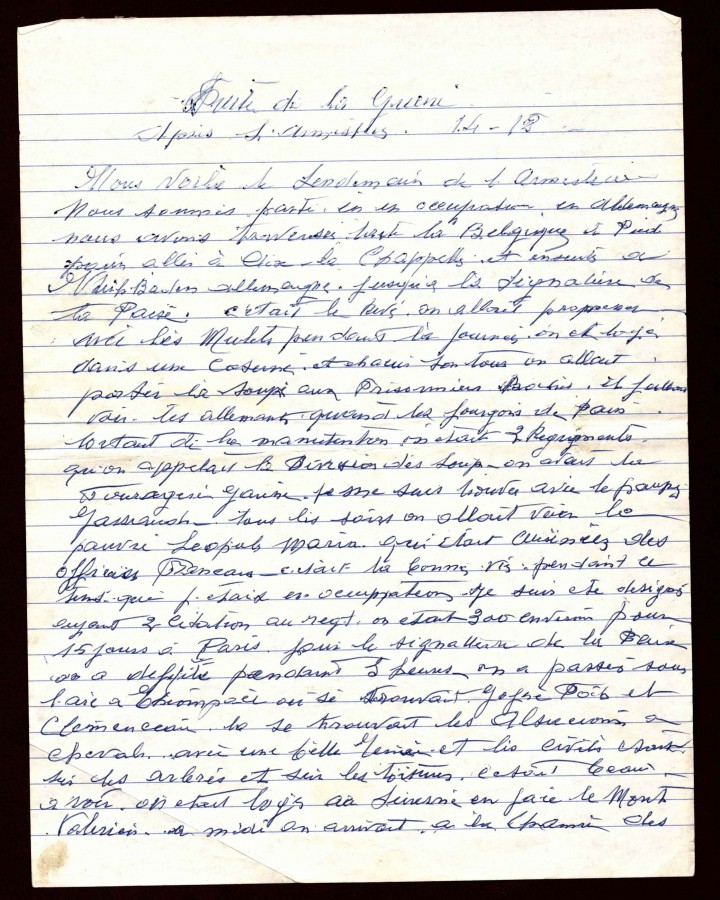 Suite de la Guerre
Après L'armistice. 14-18
Nous Voila le Lendemain de l Armistice
Nous sommes partie en occupation en Allemagne
nous avons traverser toute la Belgique à Pied
pour aller à Aix-la Chappelle et ensuite a
allemagne. jusqua la Signature de
la Paise. c'était le Rêve. on allait promener
avec les Mulets pendant la journée. on et logé
dans une Caserne. et chacun son tour on allait
porter la soupe aux Prisonniers. il fallait
voir les allemants quand les fourgons de Pain
sortait de la manutention on était 2 Regiments
qu'on appelait la Division des Soup. on avait la
Fouragère Gaune. je me suis trouver avec le pauvre
tous les soirs on allait voir le
pauvre Leopold Maria qui était cuisinier des
officiers Francais. cetait la bonne vie. pendant ce
temps que j'etais en occupation. je suis eté designé
ayant 2 citation au regt. on etait 300 environ pour
15 jours a Paris. pour le signature de la Paise
on a defilé pendant 3 heures. on a passer sous
l'arc a Triomphe ou se trouvait Joffre Foch et
Clemenceau. la se trouvait les Alsaciens a
chevals. avec une belle et les civils etait
sur les arbres et sur les toitures. cetait beau
a voir. on etait loger a Suresne en face le Mont
Valerien. a midi on arrivait. a la des